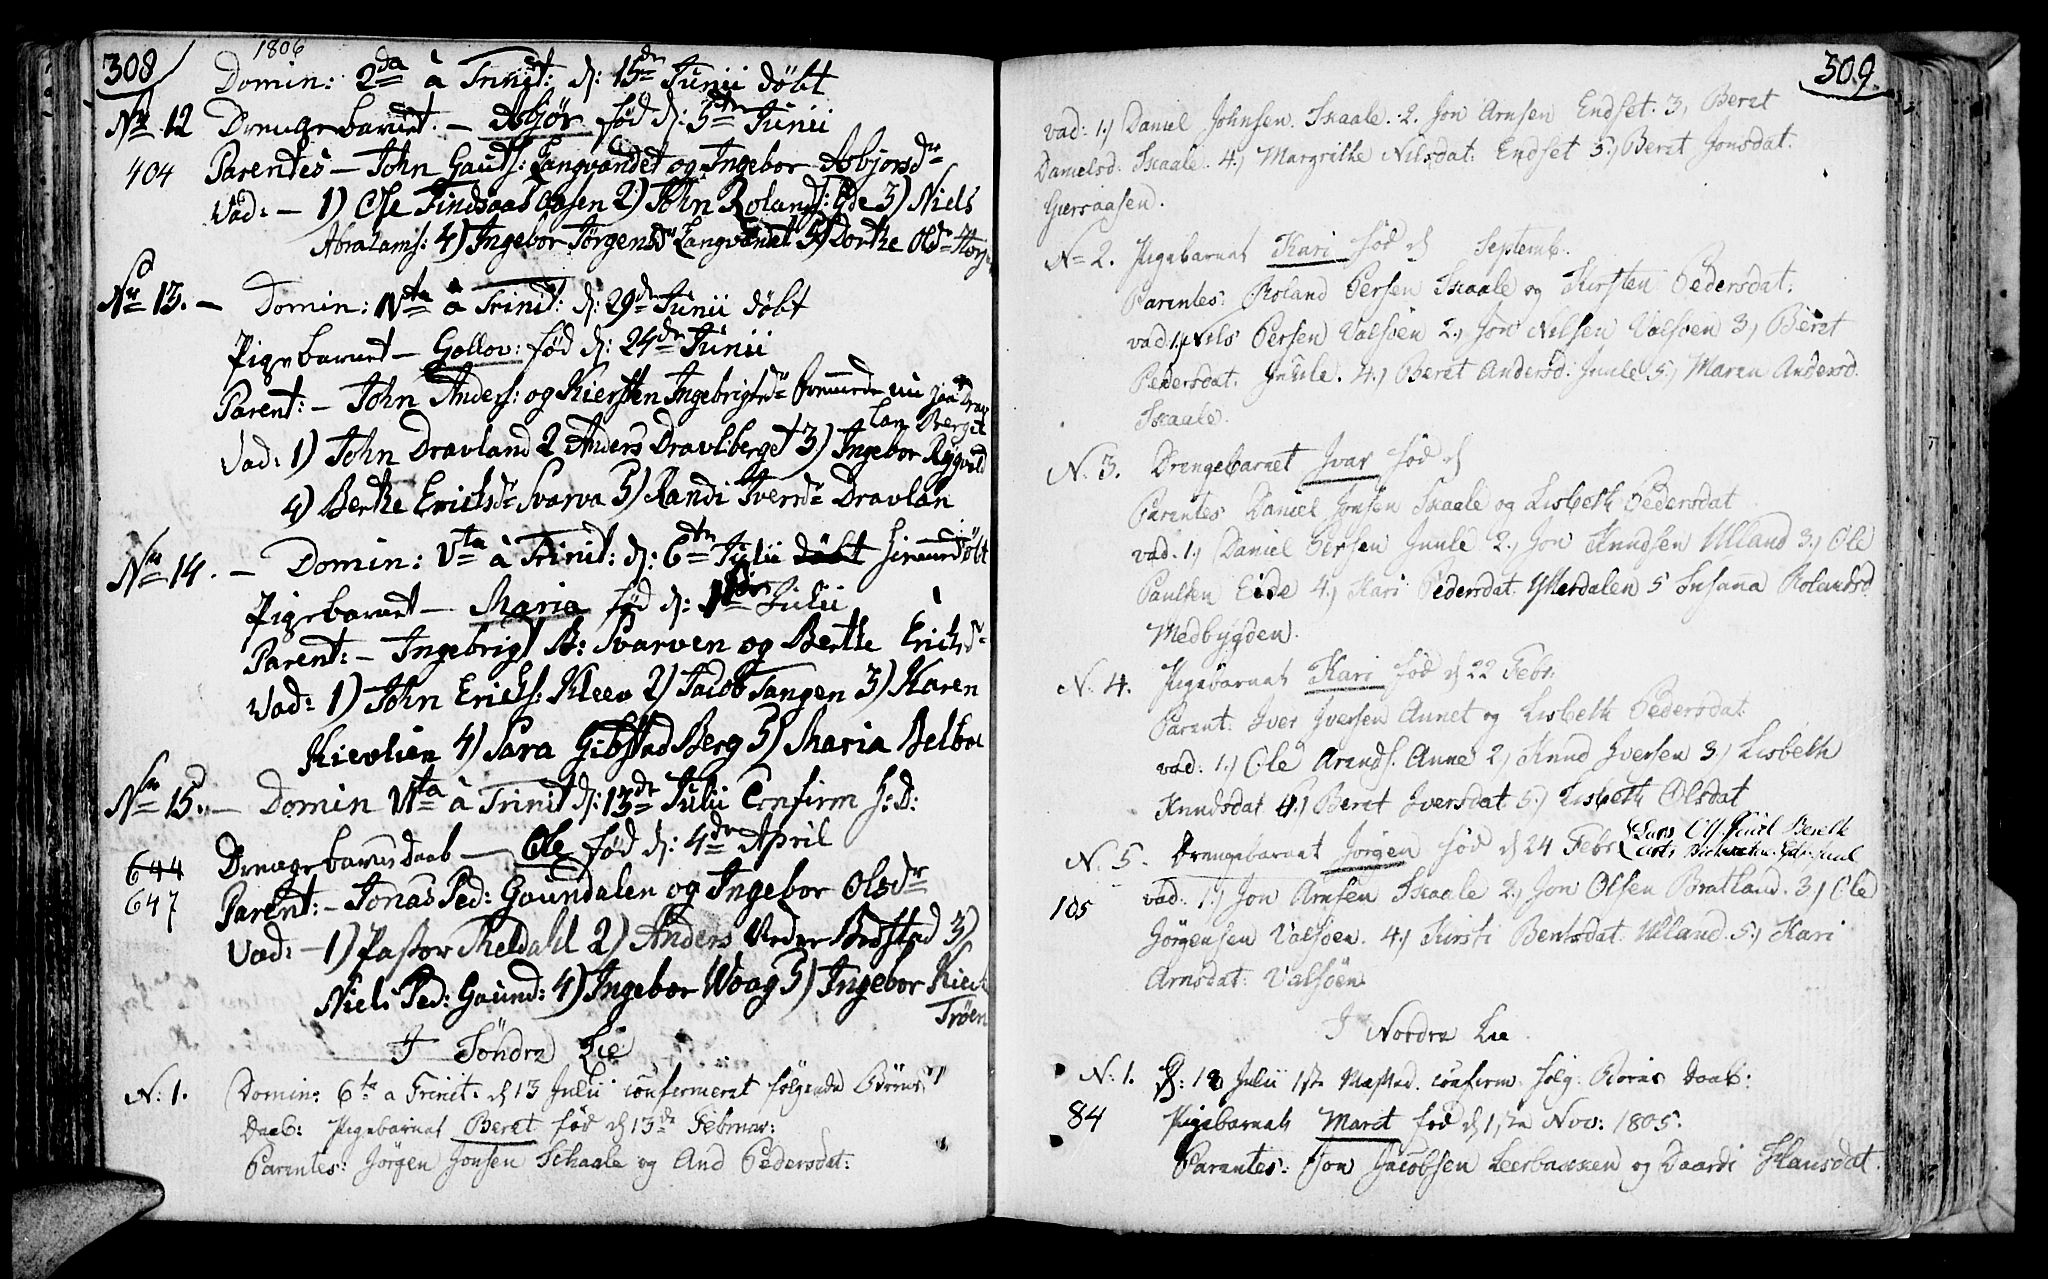 308
1806
Domin: 2da à Trinit: d: 15de Junii döbt
Nr 12 Drengebarnet – Asbjör fød d: 5te Junii
404 Parentes – John Gauts: Langvandet og Ingebor Asbjorsdr
Vad: – 1) Ole Findsaas Aasen 2) John Rolands: Eide 3) Niels
Abrahams: 4) Ingebor Jørgensdr Langvandet 5) Dorthe Olsdr
Nr 13. – Domin: IVta à Trinit: d: 29de Junii döbt
Pigebarnet – Gollov: fød d: 24de Junii
Parent: – John Anders: og Kiersten Ingebrigtsdr
Vad: 1) John Dravland 2 Anders Dravliberget 3) Ingebor
4) Berthe Ericksdr Svarva 5) Randi Iversdr Dravlan
Nr 14. – Domin: Vta à Trinit: d: 6te Julii döbt hiemmedöbt
Pigebarnet – Maria fød d: Julii
Parent: – Ingebrigt B: Svarven og Berthe Ericksdr
Vad: 1) John Ericks: Kleev 2) Jacob Tangen 3) Karen
Kievlien 4) Sara Gibstad Berg 5) Maria Belbo
Nr 15. – Domin VIta à Trinit d: 13de Julii Confirm H: D:
644 Drengebarns Daab – Ole fød d: 4de April
647 Parent: – Jonas Ped: Gaundalen og Ingebor Olsdr
Vad: – 1) Pastor Meldahl 2) Anders 3)
Niels Ped: Gaund: 4) Ingebor Woag 5) Ingebor
Trøen
I Söndre Lie
N: 1. Domin: 6te a Trinit: d 13 Julii confirmeret følgende Børns
Daab: Pigebarnet Beret fød d 13de Februar:
Parentes: Jörgen Jonsen Schaale og And Pedersdat:
309.
vad: 1.) Daniel Johnsen Skaale. 2. Jon Arnsen Endset. 3, Beret
Danielsd. Skaale. 4.) Margrithe Nilsdat: Endset 5.) Beret Jonsdat:
Gusraasen.
N 2. Pigebarnet Kari fød d Septemb.
Parentes: Roland Persen Skaale og Kirsten Pedersdat:
vad 1.) Nils Persen Valsöen 2.) Jon Nilsen Valsöen 3, Beret
Pedersdat. Juule. 4.) Beret Andersd: Juule 5.) Maren Andersd.
Skaale.
N. 3. Drengebarnet Ivar fød d
Parentes Daniel Jonsen Skaale og Lisbeth Pedersdat
vad. 1.) Daniel Persen Juule 2.) Jon Knudsen Ulland 3.) Ole
Paulsen Eide 4.) Kari Pedersdat Ytterdalen 5 Susanna Rolandsd
Medbygden.
N. 4. Pigebarnet Kari fød d 22 Febr:
Parent: Iver Iversen Annet og Lisbeth Pedersdat
vad: 1.) Ole Arnds. Anne 2.) Knud Iversen 3.) Lisbeth
Knudsdat 4.) Beret Iversdat 5.) Lisbeth Olsdat
N. 5. Drengebarnet Jörgen fød d 24 Febr
105 vad: 1.) Jon Arnsen Skaale 2.) Jon Olsen Bratland. 3.) Ole
Jörgensen Valsöen. 4.) Kirsti Bentsdat. Ulland. 5.) Kari
Arnsdat: Valsöen
I Nordre Lie
N: 1. D: 18 Julii confirm. følg: Børns Daab:
84 Pigebarnets Maret fød d Nov: 1805.
Parentes: Jon Jacobsen Leerbakken og Daardi Klausdat.